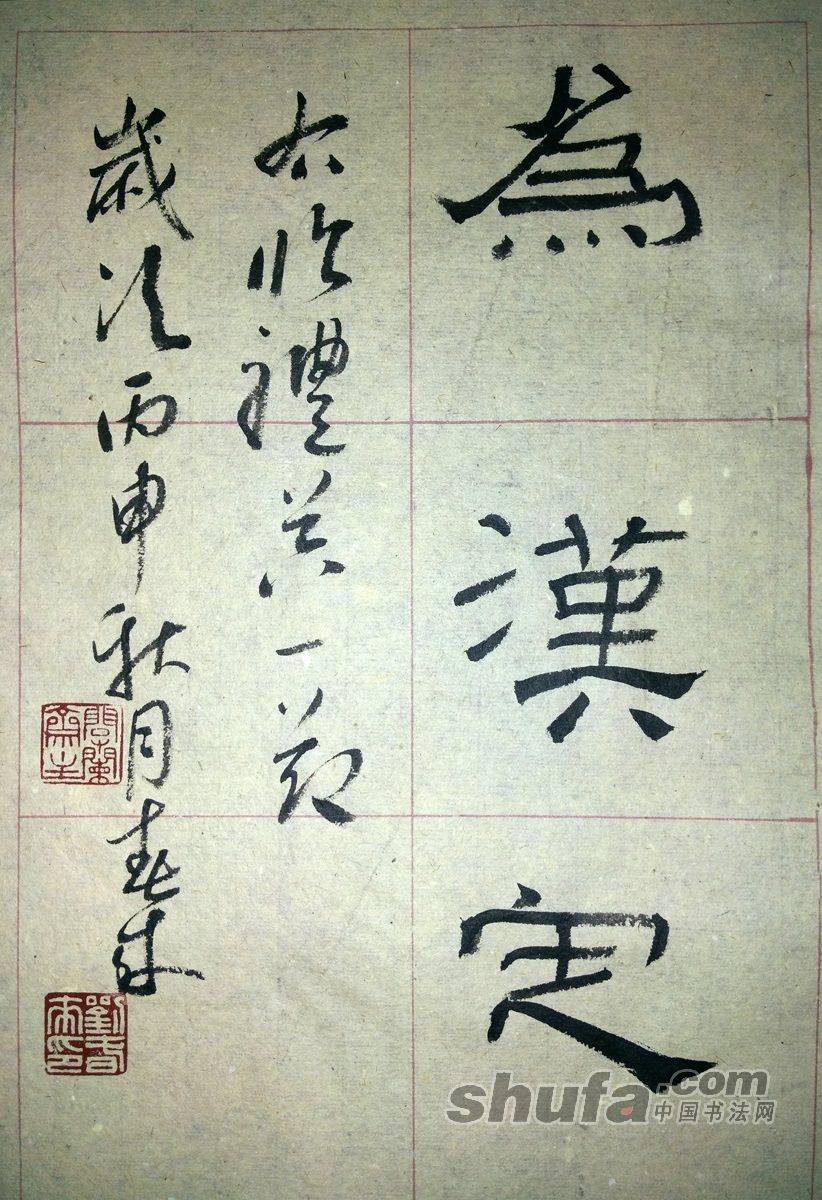 為漢定
右臨禮器一節
歲次丙申秋月
shufa.com
中国书法网